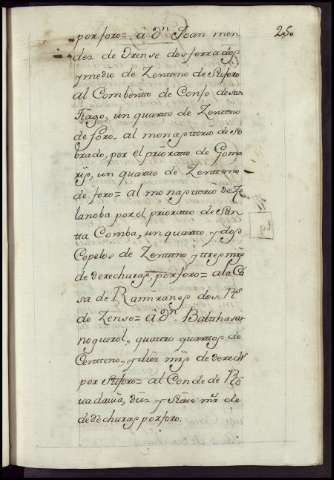 250
por foro= â Dn. Joan men
dez de Orense dos ferrados
y medio de Zenteno de su foro
al Combento de Conjo de San
tiago, un quarto de Zenteno
de foro, al monasterio de So
brado, por el priorato de Gom
riz, un quarto de Zenteno
de foro= al monasterio de Ze
lanoba por el priorato de San
ta Comba, un quarto y dos
Copelos de Zenteno y tres mrs.
de derechuras, por foro= a la Ca
sa de Ramiranes dos Rs.
de Zenso= â Dn. Balthasar
noguerol, quatro quartos de
Centeno, y diez mrs. de derechs.
por su foro= al Conde de Ri
vadavia, diez y siete mrs. de
de derechuras por foro.